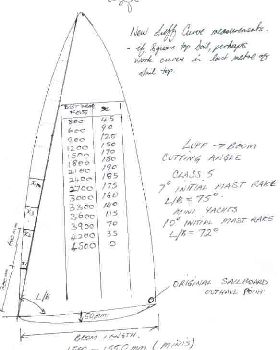 New Luff Curve measurements.
- if square top sail, perhaps
work curve in last metre of
sail top.
300 45
600 90
900 125
1200 150
1500 170
1800 180
2100 190
2400 185
2700 175
3000 160
3300 140
3600 115
3900 70
4200 35
4500 0
LUFF -> BOOM
CUTTING ANGLE
CLASS 5
7° INITIAL MAST RAKE
L/B = 75°
MINI YACHTS
10° INITIAL MAST RAKE
L/B = 72°
ORIGINAL SAILBOARD
OUTHAUL POINT
L/B
50mm
BOOM LENGTH.
1550 mm (MINIS)